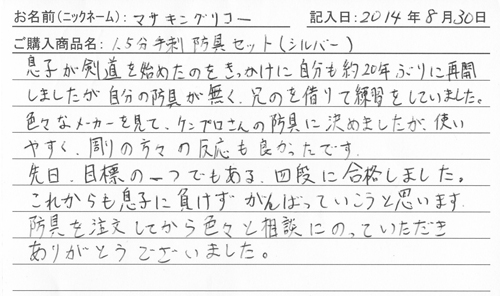 お名前(ニックネーム): マサキングリコー 記入日: 2014年8月30日
ご購入商品名: 1.5分手刺防具セット(シルバー)
息子が剣道を始めたのをきっかけに自分も約20年ぶりに再開
しましたが自分の防具が無く、兄のを借りて練習をしていました。
色々なメーカーを見て、ケンブロさんの防具に決めましたが、使い
やすく、周りの方々の反応も良かったです。
先日、目標の一つでもある、四段に合格しました。
これからも息子に負けず がんばっていこうと思います。
防具を注文してから色々と相談にのっていただき
ありがとうございました。